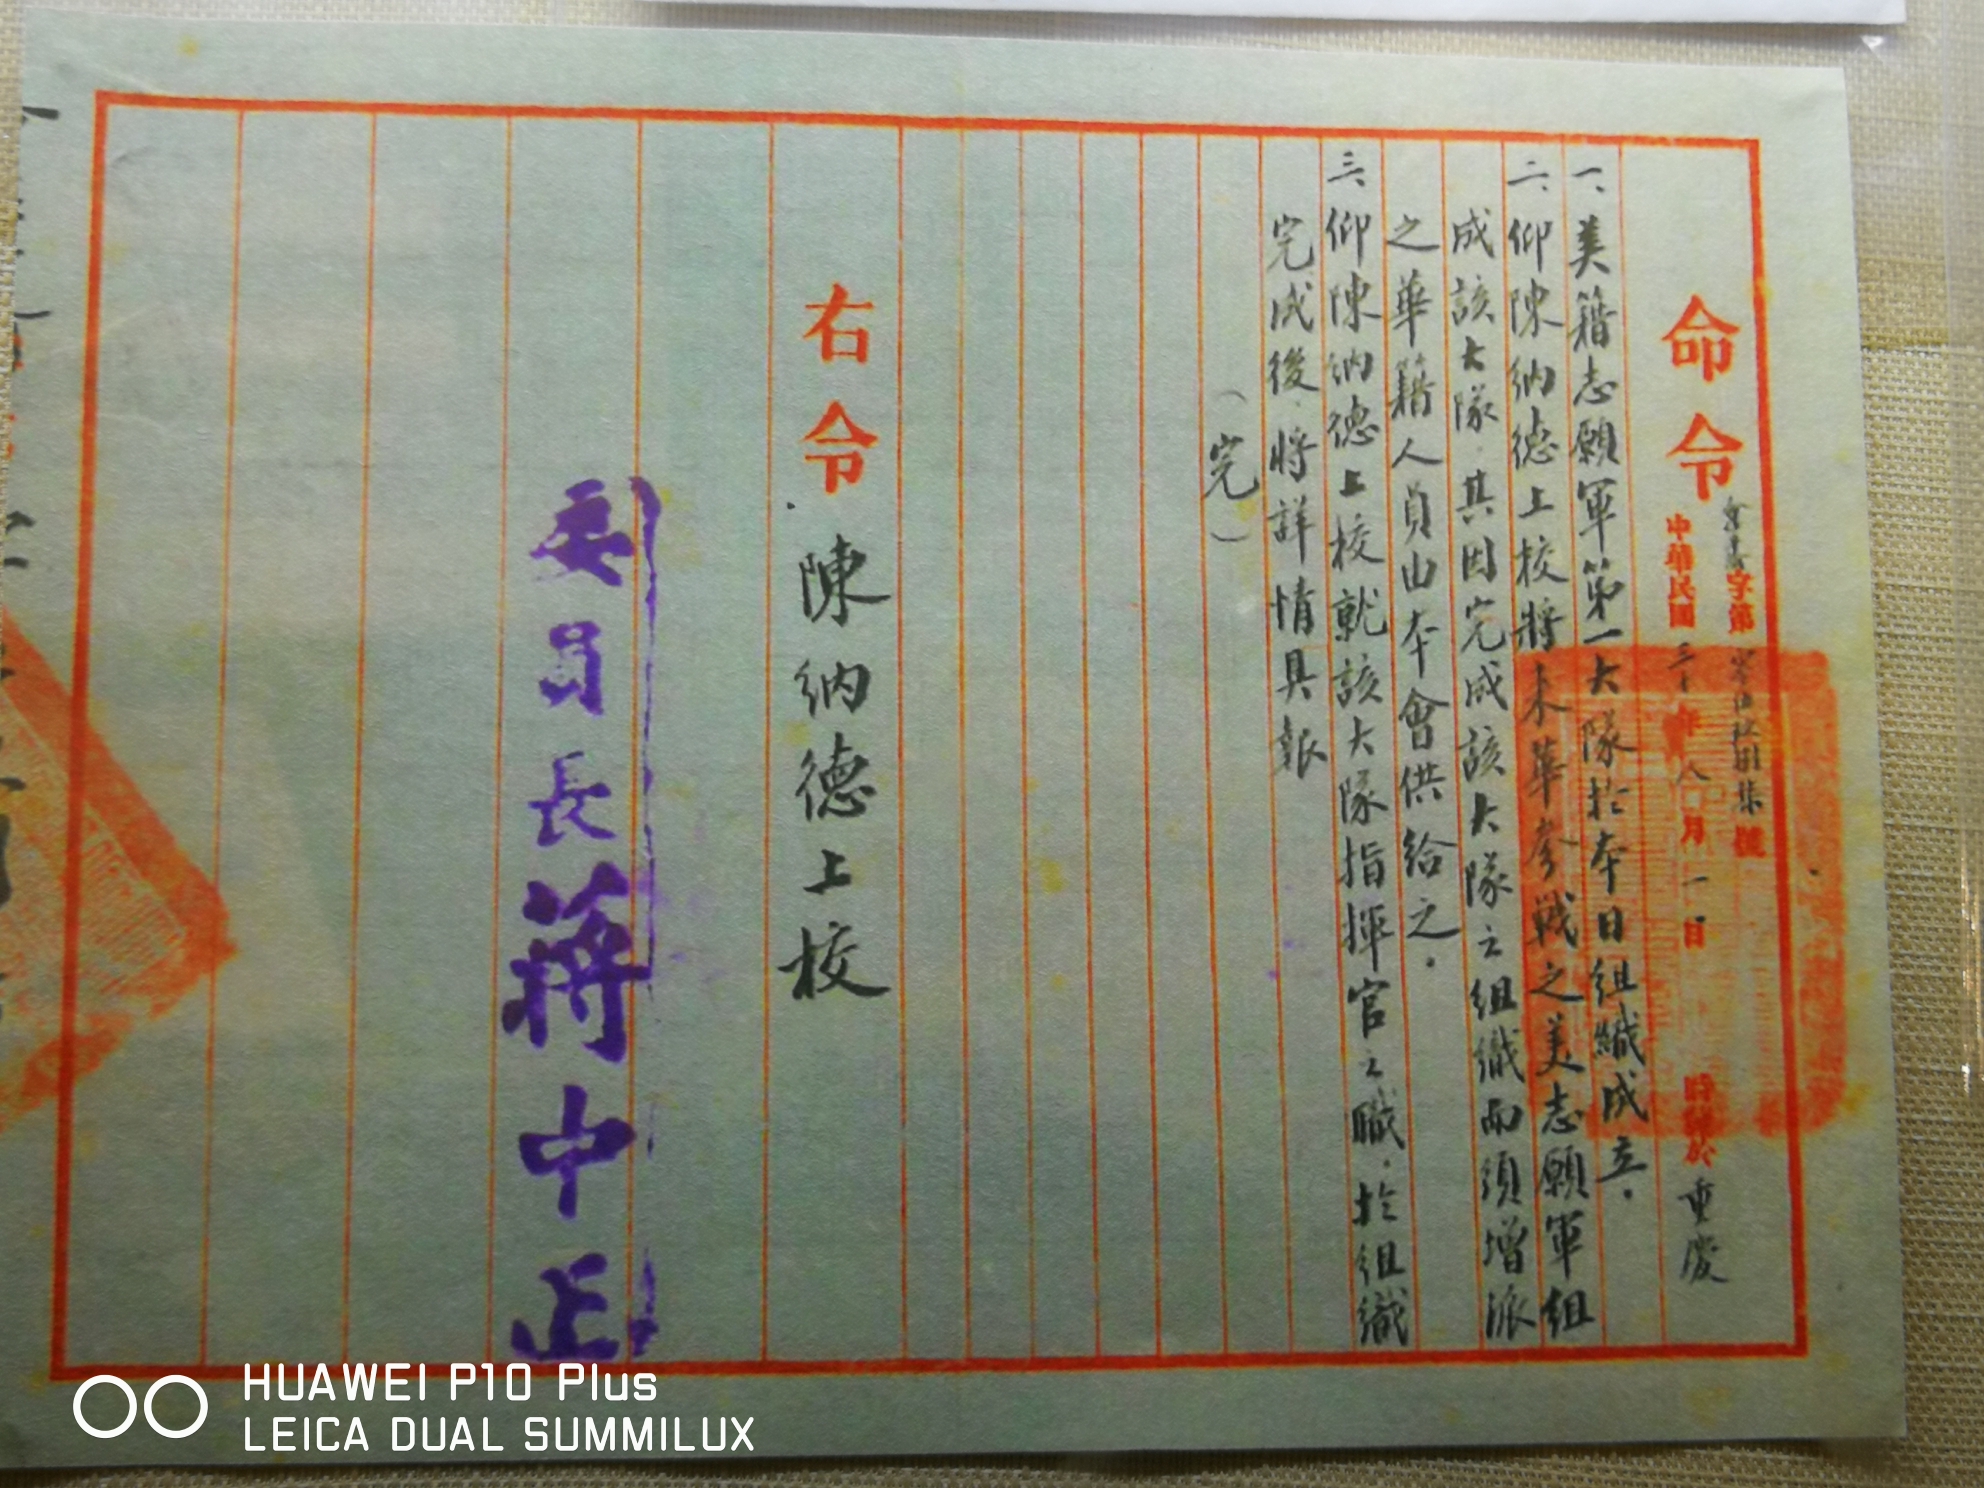 命令
字第 號
中華民國三十年八月一日 時 於重慶
一、美籍志願軍第一大隊於本日組織成立。
二、仰陳納德上校將來華參戰之美志願軍組
成該大隊.其因完成該大隊之組織而須增派
之華籍人員由本會供給之。
三、仰陳納德上校就該大隊指揮官之職.於組織
完成後.將詳情具報
(完)
右令 陳納德上校
委員長蔣中正
HUAWEI P10 Plus
LEICA DUAL SUMMILUX